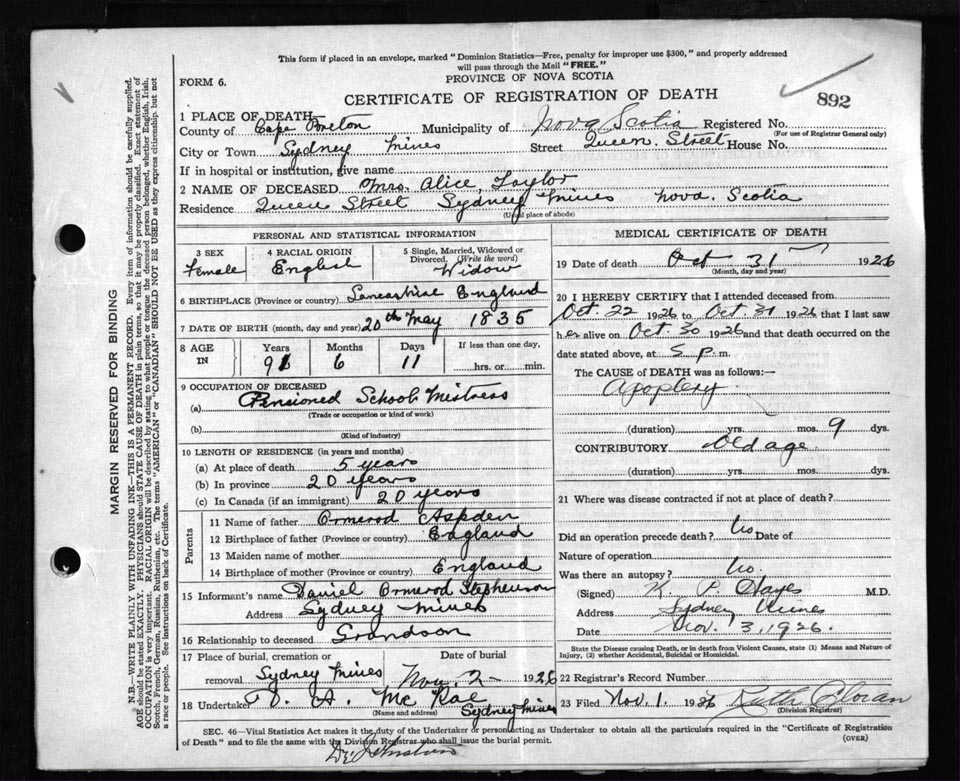 This form if placed in an envelope, marked "Dominion Statistics—Free, penalty for improper use $300," and properly addressed
will pass through the Mail "FREE."
FORM 6.
PROVINCE OF NOVA SCOTIA
CERTIFICATE OF REGISTRATION OF DEATH
892
1 PLACE OF DEATH
County of Cape Breton Municipality of Nova Scotia Registered No.
(For use of Registrar General only)
City or Town Sydney Mines Street Queen. Street House No.
If in hospital or institution, give name
2 NAME OF DECEASED Mrs. Alice, Taylor
Residence Queen Street Sydney Mines Nova. Scotia
(Usual place of abode)
PERSONAL AND STATISTICAL INFORMATION
3 SEX Female
4 RACIAL ORIGIN English
5 Single, Married, Widowed or Divorced. (Write the word) Widow
6 BIRTHPLACE (Province or country) Lancashire England
7 DATE OF BIRTH (month, day and year) 20th May 1835
8 AGE IN Years 91 Months 6 Days 11 If less than one day, hrs. or min.
9 OCCUPATION OF DECEASED
(a) Pensioned School Mistress
(Trade or occupation or kind of work)
(b)
(Kind of industry)
10 LENGTH OF RESIDENCE (in years and months)
(a) At place of death 5 years
(b) In province 20 years
(c) In Canada (if an immigrant) 20 years
Parents
11 Name of father Ormerod Aspden
12 Birthplace of father (Province or country) England
13 Maiden name of mother
14 Birthplace of mother (Province or country) England
15 Informant's name Daniel Ormerod Stephenson
Address Sydney Mines
16 Relationship to deceased Grandson
17 Place of burial, cremation or removal Sydney Mines Date of burial Nov. 2 1926
18 Undertaker A. McRae Sydney Mines
(Name and address)
MEDICAL CERTIFICATE OF DEATH
19 Date of death Oct 31 1926
(Month, day and year)
20 I HEREBY CERTIFY that I attended deceased from
Oct. 22 1926 to Oct. 31 1926 that I last saw
her alive on Oct. 30 1926 and that death occurred on the
date stated above, at 5 p. m.
The CAUSE of DEATH was as follows:—
Apoplexy
(duration) yrs. mos. 9 dys.
CONTRIBUTORY Old age
(duration) yrs. mos. dys.
21 Where was disease contracted if not at place of death?
Did an operation precede death? No Date of
Nature of operation
Was there an autopsy? No.
(Signed) K. P. Hayes M.D.
Address Sydney Mines
Date Nov. 3, 1926.
State the Disease causing Death, or in death from Violent Causes, state (1) Means and Nature of
Injury, (2) whether Accidental, Suicidal or Homicidal.
22 Registrar's Record Number
23 Filed Nov. 1. 1926 Ruth
Division Registrar)
SEC. 46—Vital Statistics Act makes it the duty of the Undertaker or person acting as Undertaker to obtain all the particulars required in the "Certificate of Registration
of Death" and to file the same with the Division Registrar who shall issue the burial permit.
(OVER)
MARGIN RESERVED FOR BINDING
N.B.—WRITE PLAINLY WITH UNFADING INK—THIS IS A PERMANENT RECORD. Every item of information should be carefully supplied.
AGE should be stated EXACTLY. PHYSICIANS should STATE CAUSE OF DEATH in plain terms, so that it may be properly classified. Exact statement of
OCCUPATION is very important. RACIAL ORIGIN will be described by stating to what people or tongue the deceased person belonged, whether English, Irish,
Scotch, French, German, Russian, Ruthenian, etc. The terms "AMERICAN" or "CANADIAN" SHOULD NOT BE USED as they express citizenship but not
a race or people. See instructions on back of Certificate.